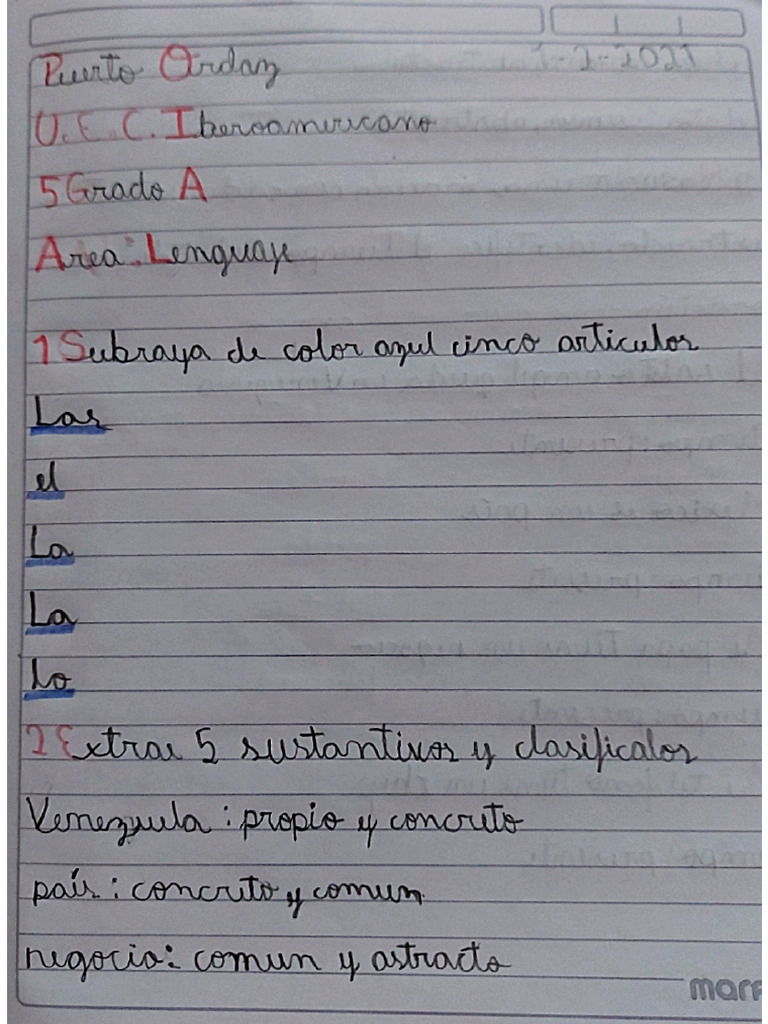 Puerto Ordaz 1-2-2021
U.E.C. Iberoamericano
5 Grado A
Area: Lenguaje
1 Subraya de color azul cinco articulos
Las
el
La
La
lo
2 Extrae 5 sustantivos y clasificalos
Venezuela: propio y concreto
país: concreto y comun
negocio: comun y astracto